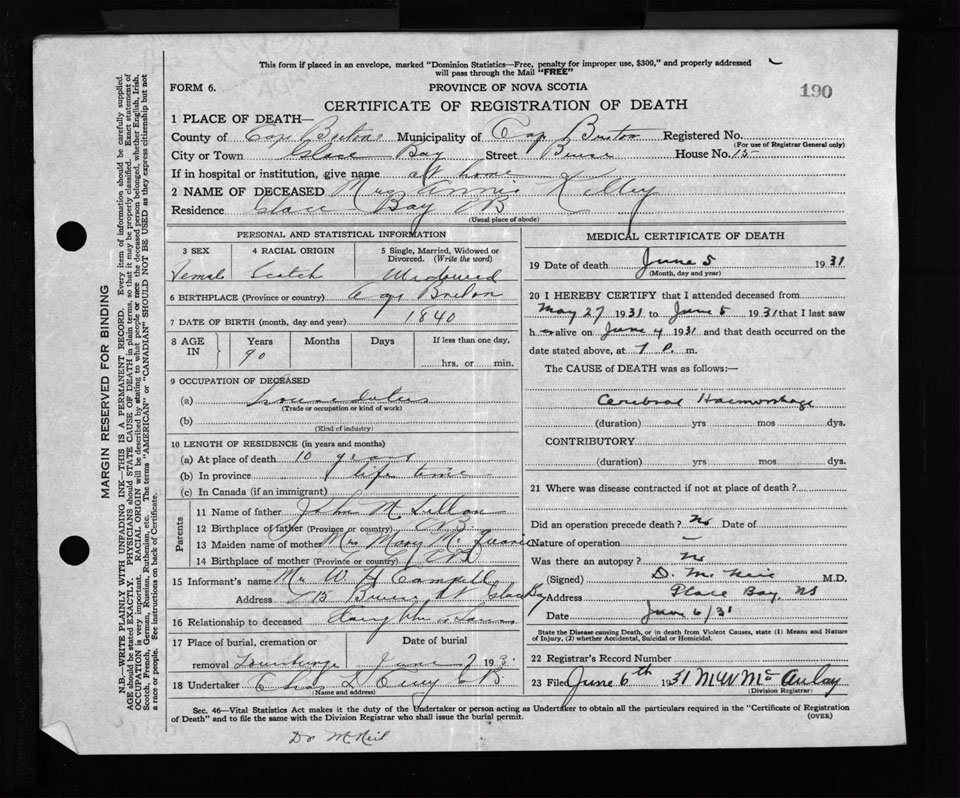 This form if placed in an envelope, marked "Dominion Statistics—Free, penalty for improper use, $300," and properly addressed
will pass through the Mail "FREE"
FORM 6. PROVINCE OF NOVA SCOTIA 190
CERTIFICATE OF REGISTRATION OF DEATH
1 PLACE OF DEATH—
County of Cape Breton Municipality of Cape Breton Registered No.
(For use of Registrar General only)
City or Town Glace Bay Street House No. 15
If in hospital or institution, give name at home
2 NAME OF DECEASED Mrs Annie Kelley
Residence Glace Bay CB
(Usual place of abode)
PERSONAL AND STATISTICAL INFORMATION
3 SEX 4 RACIAL ORIGIN 5 Single, Married, Widowed or
Divorced. (Write the word)
Female Scotch Widowed
6 BIRTHPLACE (Province or country) Cape Breton
7 DATE OF BIRTH (month, day and year) 1840
8 AGE IN Years Months Days If less than one day,
90 hrs. or min.
9 OCCUPATION OF DECEASED
(a) House duties
(Trade or occupation or kind of work)
(b)
(Kind of industry)
10 LENGTH OF RESIDENCE (in years and months)
(a) At place of death 10 years
(b) In province life time
(c) In Canada (if an immigrant)
Parents
11 Name of father John
12 Birthplace of father (Province or country) CB
13 Maiden name of mother Mrs Mary
14 Birthplace of mother (Province or country) CB
15 Informant's name Mr W H Campell
Address 15 St Glace Bay
16 Relationship to deceased
17 Place of burial, cremation or Date of burial
removal June 7 193
18 Undertaker Chas CB
(Name and address)
MEDICAL CERTIFICATE OF DEATH
19 Date of death June 5 1931
(Month, day and year)
20 I HEREBY CERTIFY that I attended deceased from
May 27 1931 to June 5 1931 that I last saw
h alive on June 4 1931 and that death occurred on
date stated above, at 7 P. m.
The CAUSE of DEATH was as follows:—
Cerebral Haemorrhage
(duration) yrs mos dys.
CONTRIBUTORY
(duration) yrs mos dys.
21 Where was disease contracted if not at place of death?
Did an operation precede death? No Date of
Nature of operation —
Was there an autopsy? No
(Signed) D. McNeil M.D.
Address Glace Bay, NS
Date June 6/31
State the Disease causing Death, or in death from Violent Causes, state (1) Means and Nature
of Injury, (2) whether Accidental, Suicidal or Homicidal.
22 Registrar's Record Number
23 Filed June 6th 1931 M W McAulay
(Division Registrar)
Sec. 46—Vital Statistics Act makes it the duty of the Undertaker or person acting as Undertaker to obtain all the particulars required in the "Certificate of Registration
of Death" and to file the same with the Division Registrar who shall issue the burial permit. (OVER)
Dr McNeil
MARGIN RESERVED FOR BINDING
N.B.—WRITE PLAINLY WITH UNFADING INK—THIS IS A PERMANENT RECORD. Every item of information should be carefully supplied.
AGE should be stated EXACTLY. PHYSICIANS should STATE CAUSE OF DEATH in plain terms, so that it may be properly classified. Exact statement of
OCCUPATION is very important. RACIAL ORIGIN will be described by stating to what people or race the deceased person belonged, whether English, Irish,
Scotch, French, German, Russian, Ruthenian, etc. The terms "AMERICAN" or "CANADIAN" SHOULD NOT BE USED as they express citizenship but not
a race or people. See instructions on back of Certificate.